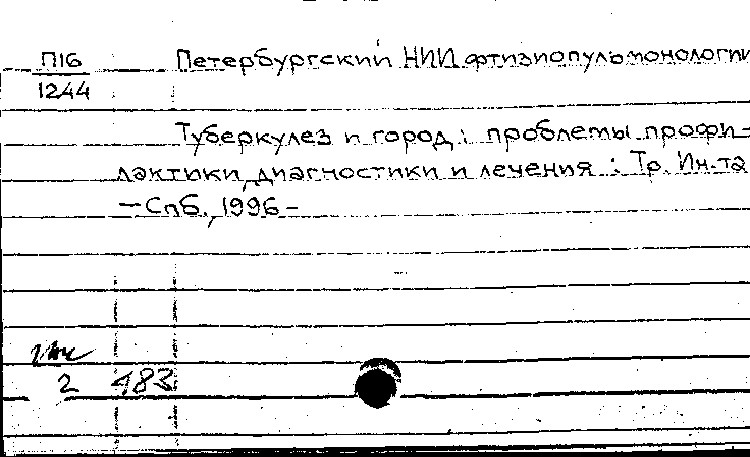 П16
1244
Петербургский НИИ фтизиопульмонологии
Туберкулез и город : проблемы профи-
лактики, диагностики и лечения : Тр. Ин-та
— Спб., 1996 –
2 483